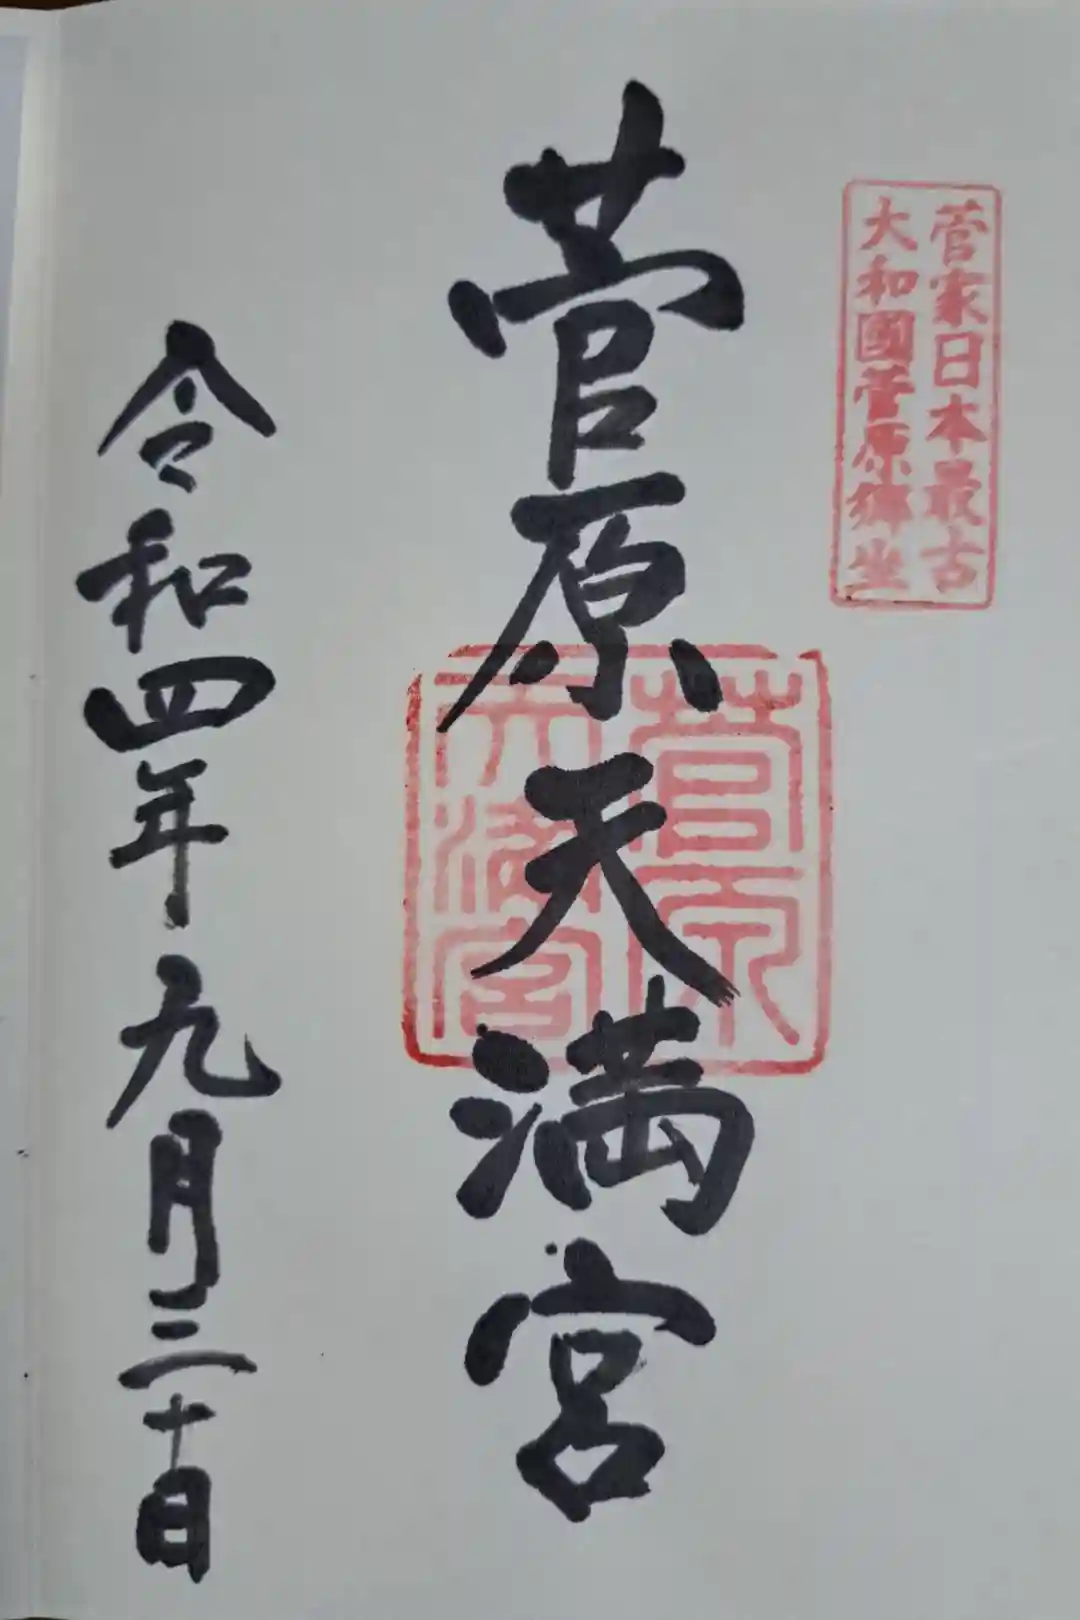 菅家日本最古
大和國菅原郷坐
菅原天満宮
菅原
天満宮
令和四年九月三十日